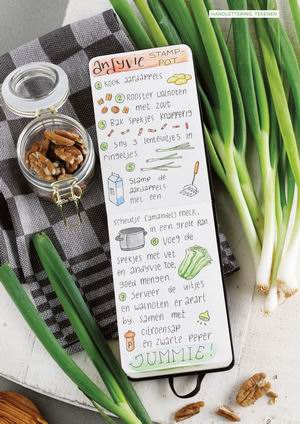 HANDLETTERING TEKENEN
andyvie STAMP-
POT
1 KOOK AARDAPPELS
2 ROOSTER WALNOTEN
MET ZOUT
3 BAK SPEKJES KNAPPERIG
4 SNY 3 LENTEUITJES IN
RINGETJES
5 STAMP DE
AARDAPPELS
MET EEN
SCHEUTJE (AMANDEL) MELK.
IN EEN GROTE PAN.
6 VOEG DE
SPEKJES MET VET
EN ANDYVIE TOE,
GOED MENGEN.
7 SERVEER DE UITJES
EN WALNOTEN ER APART
BY. SAMEN MET
CITROENSAP
EN ZWARTE PEPER
JUMMIE!